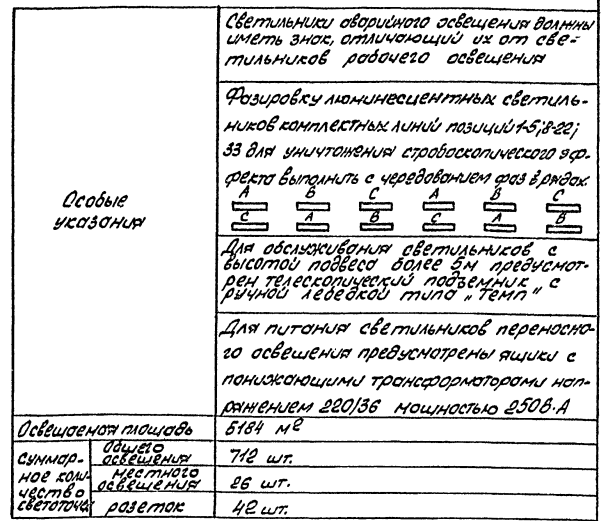 Особые
указания
Светильники аварийного освещения должны
иметь знак, отличающий их от све-
тильников рабочего освещения
Фазировку люминесцентных светиль-
ников комплектных линий позиций 1-5; 8-22;
33 для уничтожения стробоскопического эф-
фекта выполнить с чередованием фаз в рядах
A B C A B C
C A B C A B
Для обслуживания светильников с
высотой подвеса более 5м предусмот-
рен телескопический подъемник с
ручной лебедкой типа „Темп"
Для питания светильников переносно-
го освещения предусмотрены ящики с
понижающими трансформаторами нап-
ряжением 220/36 мощностью 250В·А
Освещаемая площадь 5184 м2
Суммар-
ное коли-
чество
светоточек
Общего
освещения 712 шт.
местного
освещения 26 шт.
розеток 42 шт.